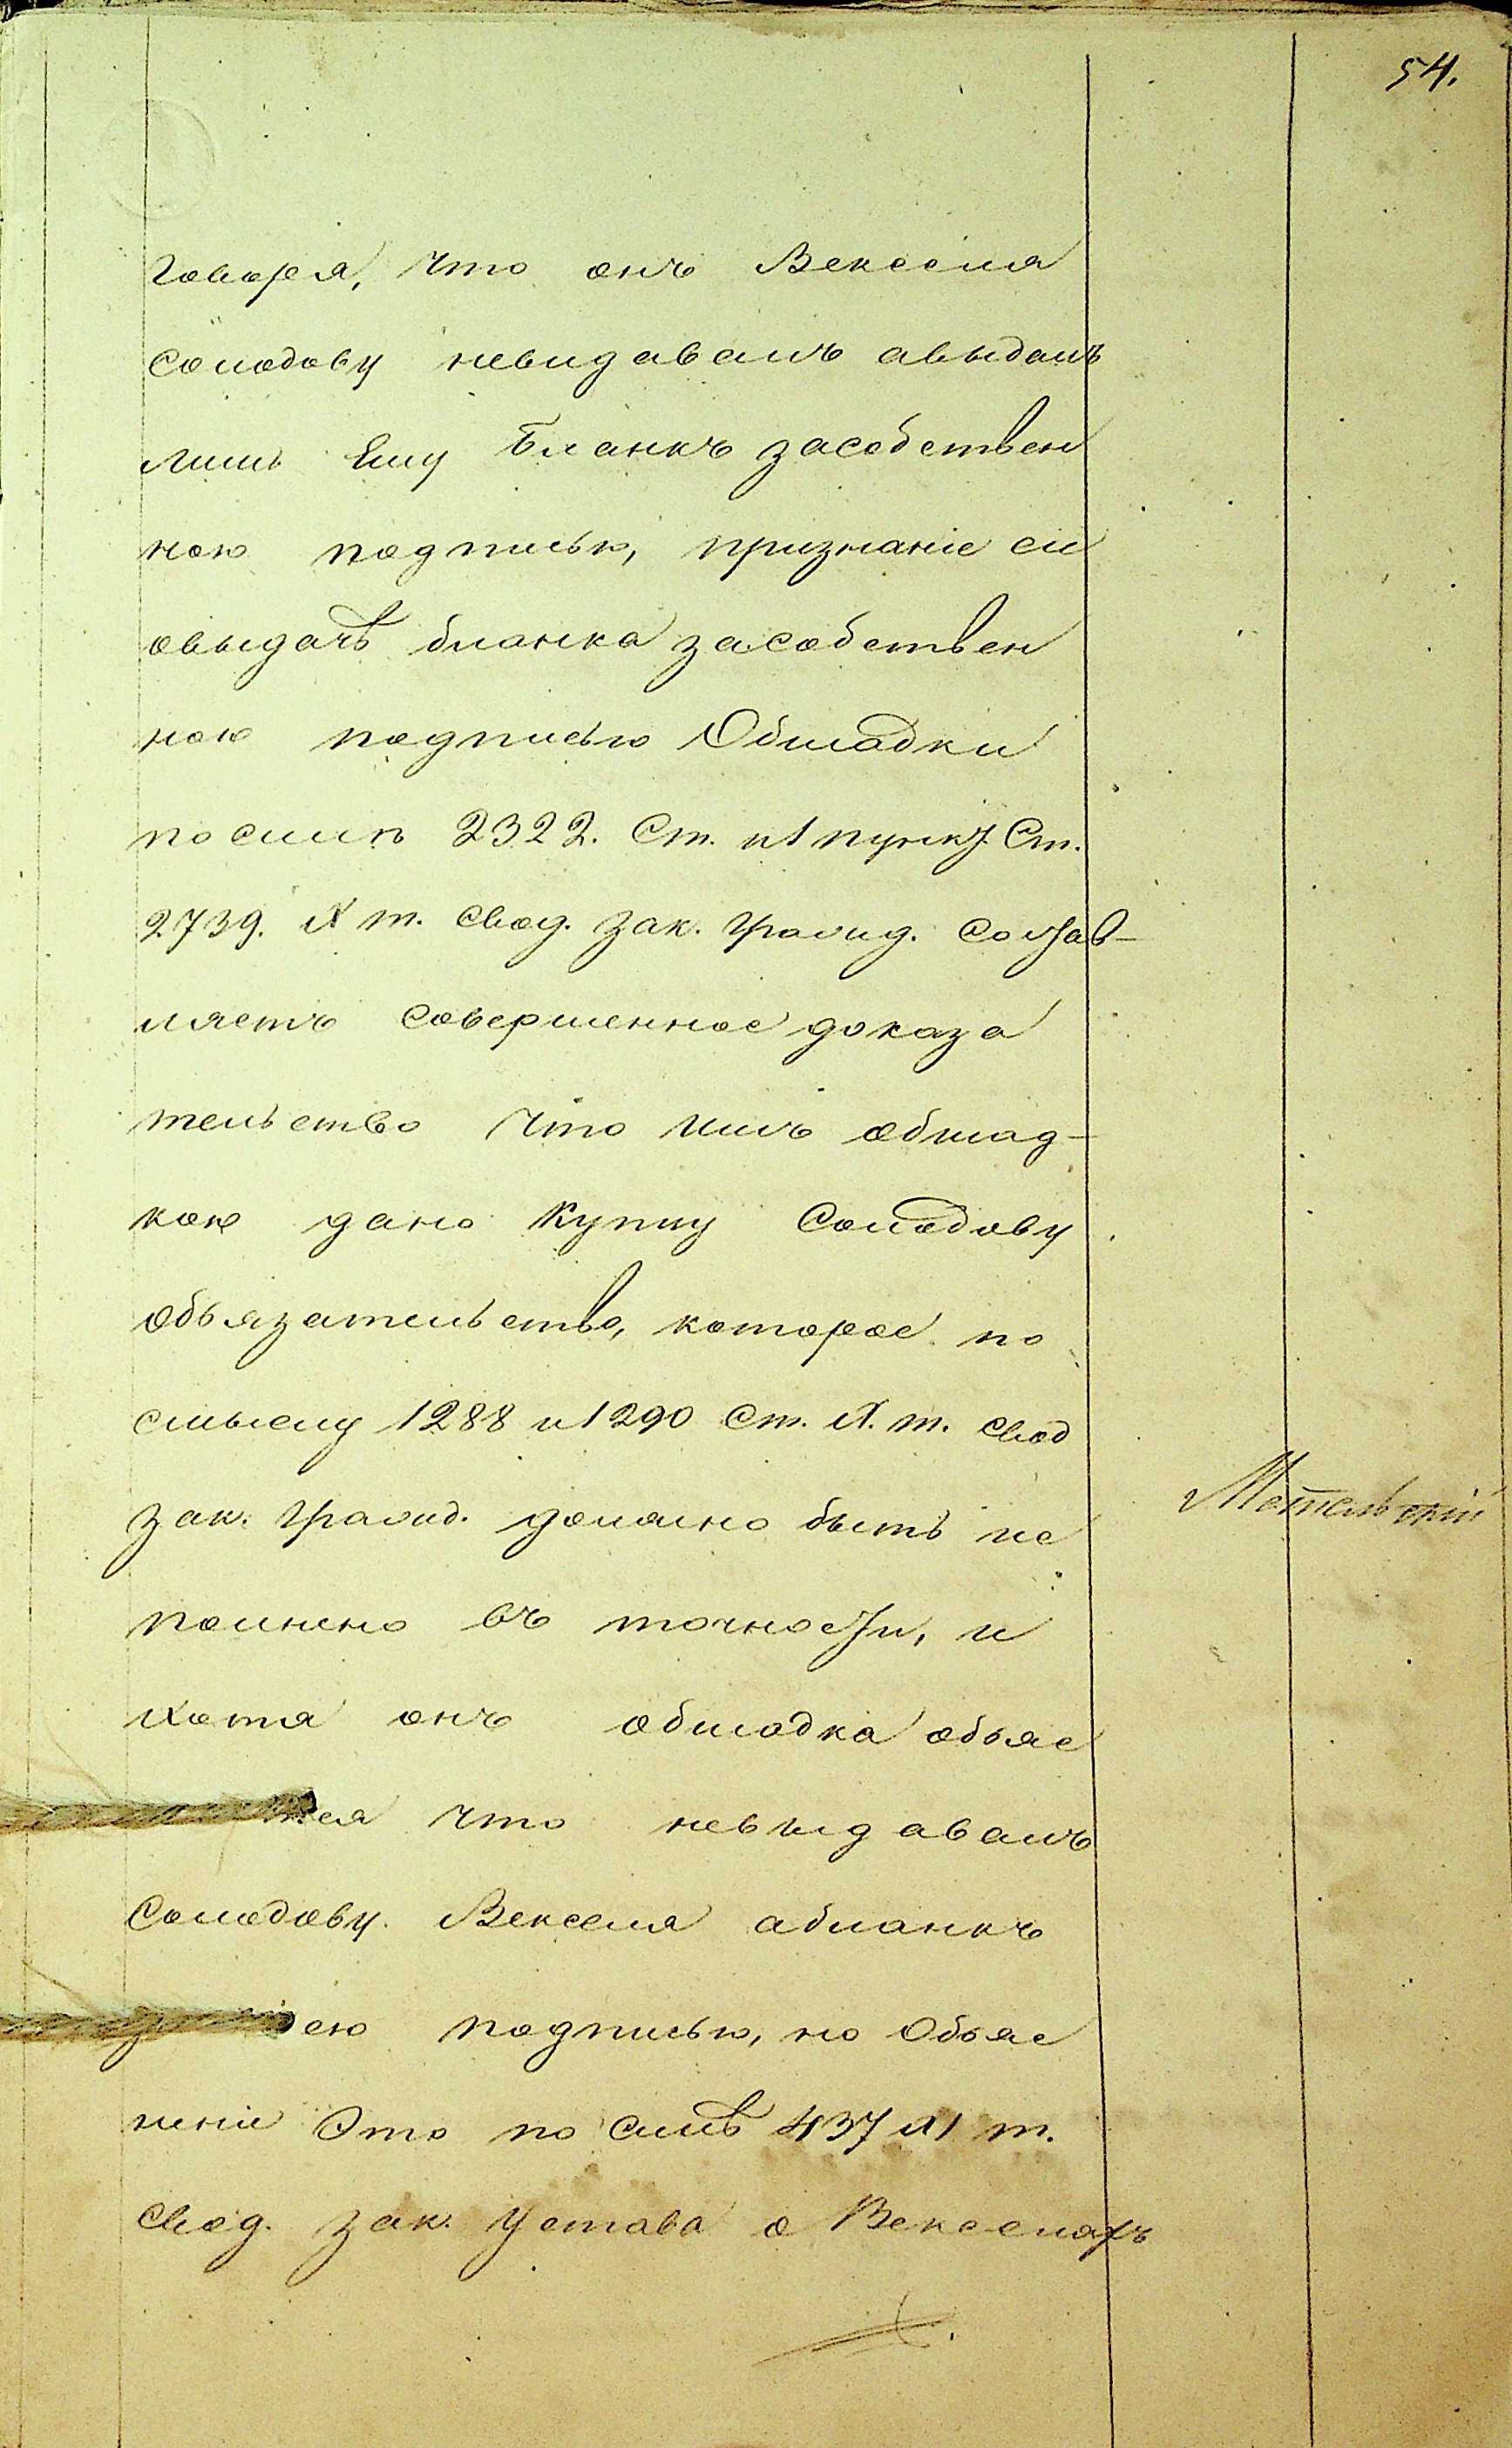 54.
говоря, что онъ Векселя
Солодову невидавалъ авыдалъ
лишь Ему Бланкъ засобствен
ною подписью, признаніе сіе
овыдачѣ бланка засобствен
ною подписью Обладки
по силѣ 2322. Ст. и 1 пункт Ст.
2739. X т. Свод. Зак. Гражд. Состав-
ляетъ совершенное доказа
тельство что имъ облад-
кою дано Купцу Солодову
обьязательство, которое по
смыслу 1288 и 1290 Ст. X. т. Свод
Зак. Гражд. должно быть ис
полнено въ точности, и
хотя онъ обладка обьяс
что невыдавалъ
Солодову Векселя абланкъ
ею подписью, но Обьяс
неніе Это по силѣ 437 XI т.
Свод. Зак. Устава о Векселяхъ
Метельскій